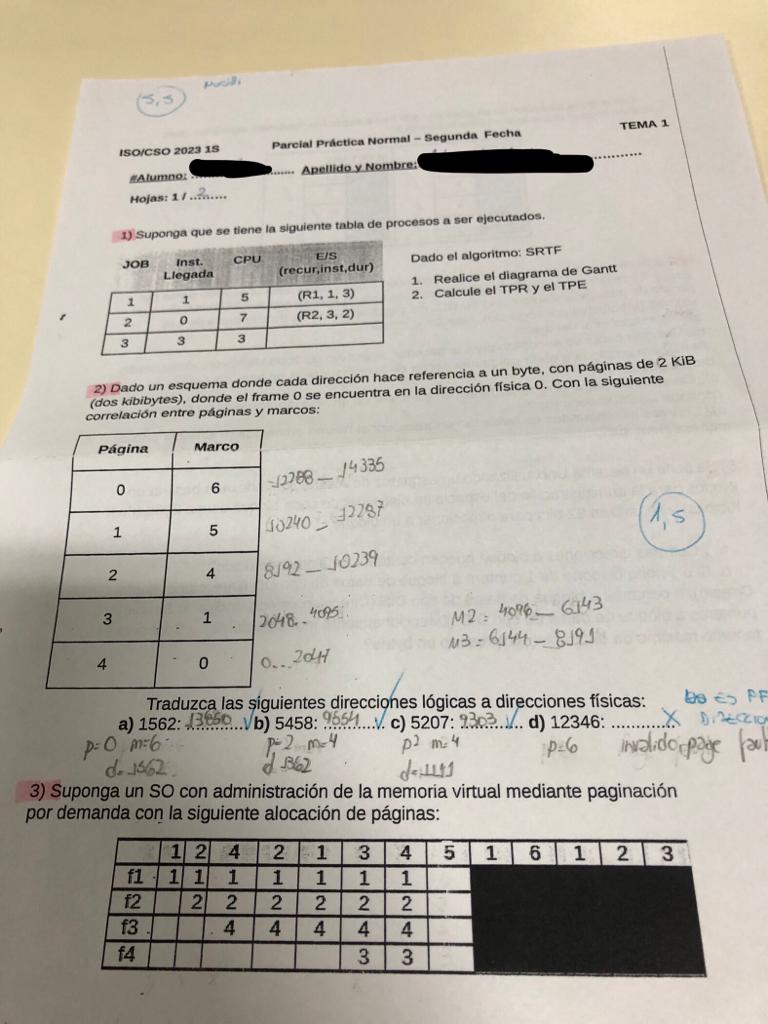 5,5
ISO/CSO 2023 1S Parcial Práctica Normal – Segunda Fecha TEMA 1
#Alumno: .................. Apellido y Nombre: ..................
Hojas: 1 / ..2......
1) Suponga que se tiene la siguiente tabla de procesos a ser ejecutados.
JOB Inst. Llegada CPU E/S (recur,inst,dur)
1 1 5 (R1, 1, 3)
2 0 7 (R2, 3, 2)
3 3 3
Dado el algoritmo: SRTF
1. Realice el diagrama de Gantt
2. Calcule el TPR y el TPE
2) Dado un esquema donde cada dirección hace referencia a un byte, con páginas de 2 KiB
(dos kibibytes), donde el frame 0 se encuentra en la dirección física 0. Con la siguiente
correlación entre páginas y marcos:
Página Marco
0 6 12288 – 14335
1 5 10240 – 12287
2 4 8192 – 10239
3 1 2048..4095
4 0 0...2047
1,5
M2: 4096 – 6143
M3: 6144 – 8191
Traduzca las siguientes direcciones lógicas a direcciones físicas:
a) 1562: 13850 b) 5458: 9554 c) 5207: 9303 d) 12346: ............
ES PF
p=0 m=6 p=2 m=4 p2 m=4 p=6 invalido page
d=1562 d 1362 d=1111
3) Suponga un SO con administración de la memoria virtual mediante paginación
por demanda con la siguiente alocación de páginas:
1 2 4 2 1 3 4 5 1 6 1 2 3
f1 1 1 1 1 1 1 1
f2 2 2 2 2 2 2
f3 4 4 4 4 4
f4 3 3